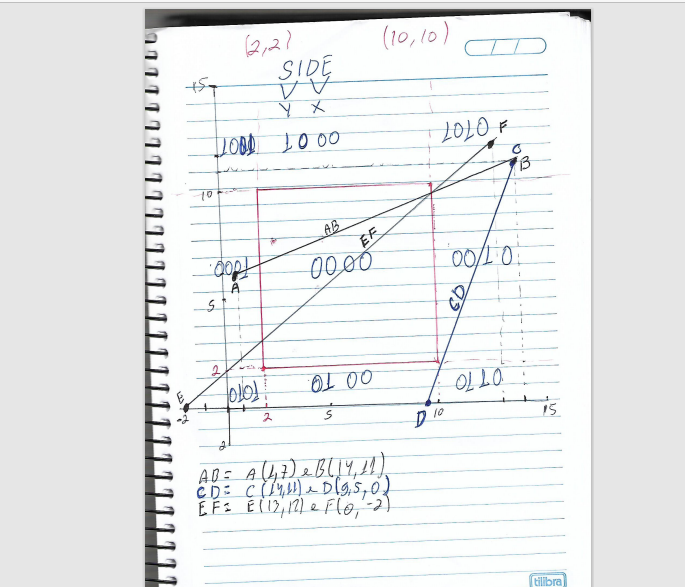 (2,2) (10,10)
SIDE
Y X
15
1001 1000 1010 F
C
B
10
AB
EF
0001 0000 0010
A
5
CD
2
0101 0100 0110
E
-2 2 5 D 10 15
2
AB= A(1,7) e B(14,11)
CD= C(14,11) e D(9,5,0)
EF= E(13,12) e F(0,-2)
tilibra